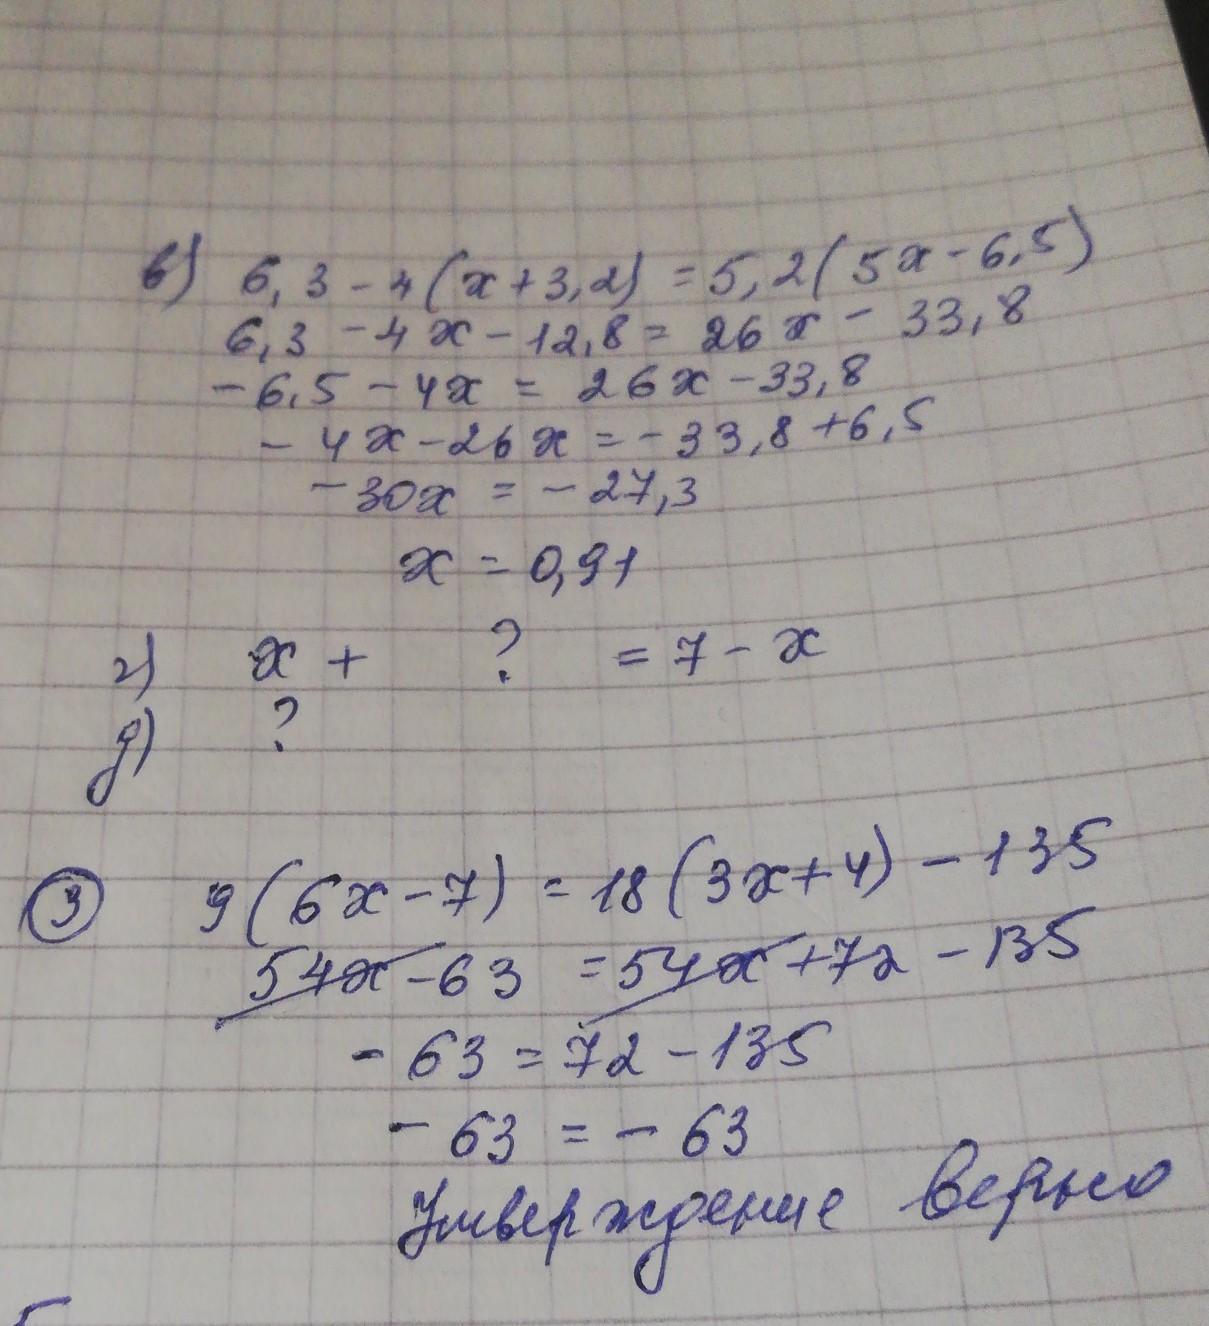 в) 6,3 - 4(x + 3,2) = 5,2(5x - 6,5)
6,3 - 4x - 12,8 = 26x - 33,8
- 6,5 - 4x = 26x - 33,8
- 4x - 26x = - 33,8 + 6,5
- 30x = - 27,3
x = 0,91
г) x + ? = 7 - x
д) ?
③ 9(6x - 7) = 18(3x + 4) - 135
54x - 63 = 54x + 72 - 135
- 63 = 72 - 135
- 63 = - 63
Утверждение верно